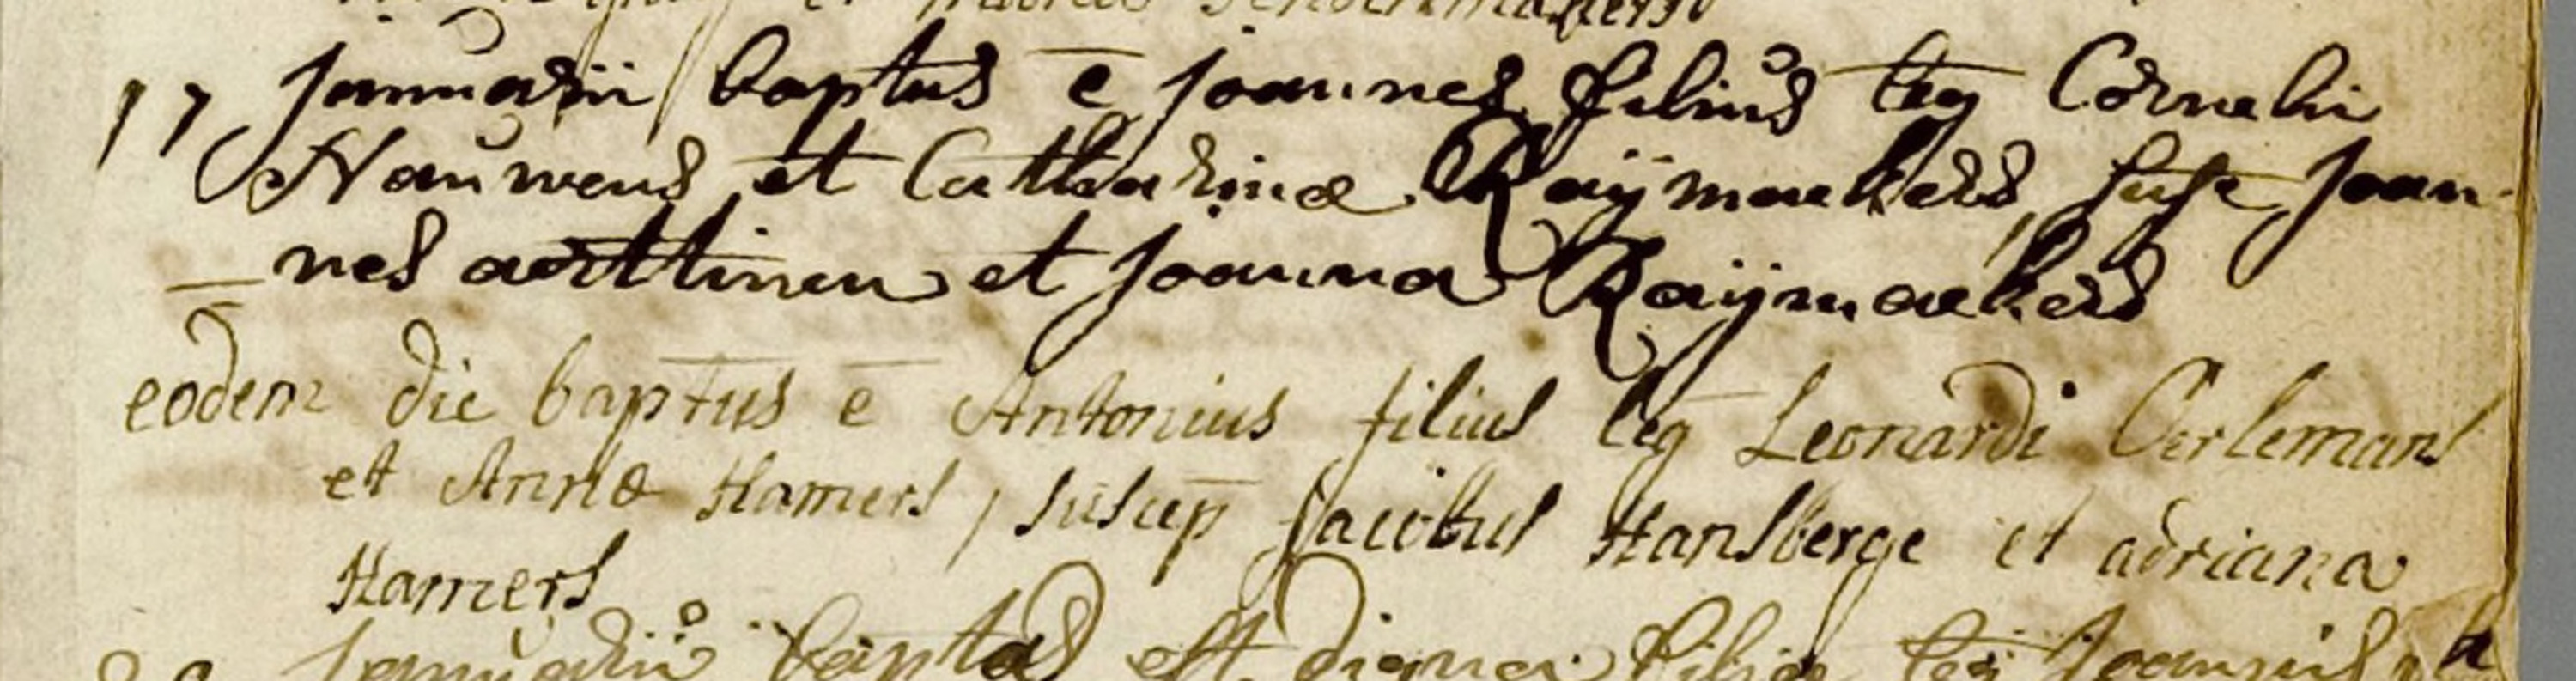 17 Januarii baptus ē Joannes filius leg Cornelii
Nauwens et Catharinæ Raijmaekers, susc Joan-
nes aerttinen et Joanna Raijmaekers
eodem die baptus ē Antonius filius leg Leonardi Oerlemans
et Annæ Hamers, suscep Jacobus Hansberge et adriana
Hamers
Januarii baptā est digna filia leg Joannis